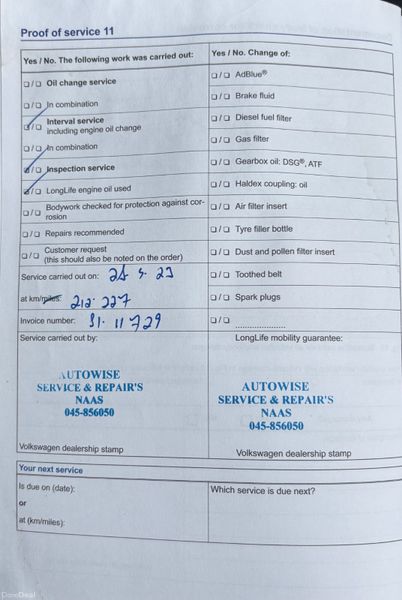 Proof of service 11
Yes / No. The following work was carried out:
❏ / ❏ Oil change service
❏ / ❏ In combination
❏ / ❏ Interval service
including engine oil change
❏ / ❏ In combination
❏ / ❏ Inspection service
❏ / ❏ LongLife engine oil used
❏ / ❏ Bodywork checked for protection against cor-
rosion
❏ / ❏ Repairs recommended
❏ / ❏ Customer request
(this should also be noted on the order)
Service carried out on: 24 5. 23
at km/miles: 212. 227
Invoice number: 11 729
Service carried out by:
AUTOWISE
SERVICE & REPAIR'S
NAAS
045-856050
Volkswagen dealership stamp
Yes / No. Change of:
❏ / ❏ AdBlue®
❏ / ❏ Brake fluid
❏ / ❏ Diesel fuel filter
❏ / ❏ Gas filter
❏ / ❏ Gearbox oil: DSG®, ATF
❏ / ❏ Haldex coupling: oil
❏ / ❏ Air filter insert
❏ / ❏ Tyre filler bottle
❏ / ❏ Dust and pollen filter insert
❏ / ❏ Toothed belt
❏ / ❏ Spark plugs
❏ / ❏ .....................
LongLife mobility guarantee:
AUTOWISE
SERVICE & REPAIR'S
NAAS
045-856050
Volkswagen dealership stamp
Your next service
Is due on (date):
or
at (km/miles):
Which service is due next?
DoneDeal